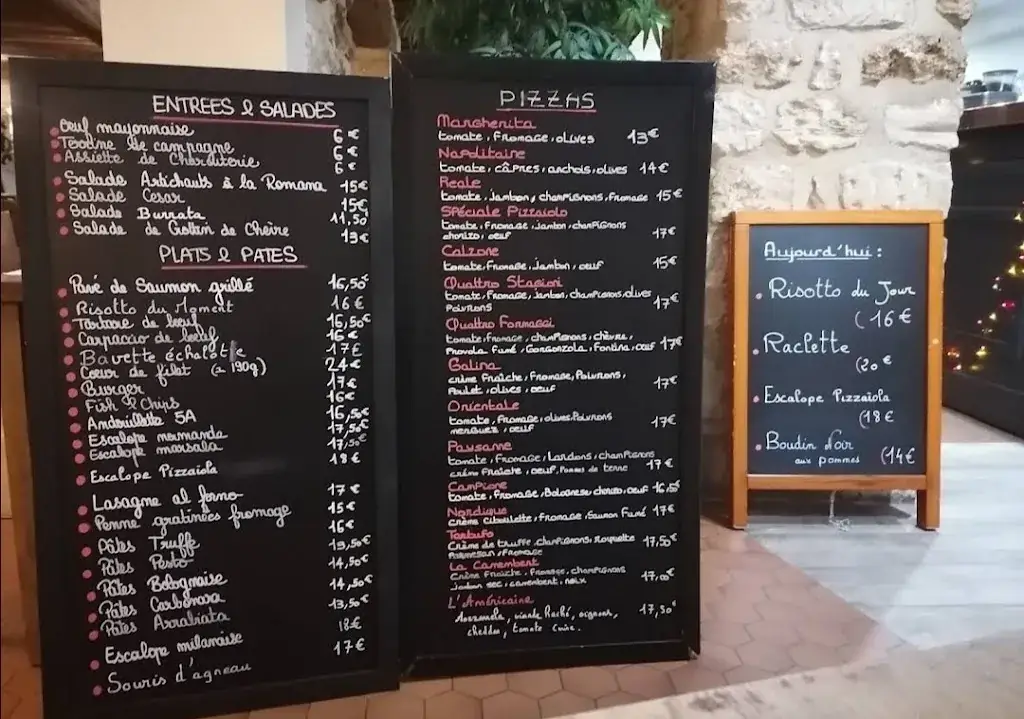 ENTREES & SALADES
Oeuf mayonnaise 6€
Terrine de campagne 6€
Assiette de Charcuterie 6€
Salade Artichauts à la Romana 15€
Salade Cesar 15€
Salade Burrata 11,50
Salade de Crottin de Chèvre 13€
PLATS & PATES
Pavé de Saumon grillé 16,50€
Risotto du Moment 16€
Tartare de boeuf 16,50€
Carpaccio de boeuf 16€
Bavette échalote 17€
Coeur de filet (≃ 190g) 24€
Burger 17€
Fish & Chips 16€
Andouillette 5A 16,50€
Escalope normande 17,50€
Escalope marsala 17,50€
Escalope Pizzaiola 18€
Lasagne al forno 17€
Penne gratinées fromage 15€
Pâtes Truffe 16€
Pâtes Pesto 19,50€
Pâtes Bolognaise 14,50€
Pâtes Carbonara 14,50€
Pâtes Arrabiata 13,50€
Escalope milanaise 18€
Souris d'agneau 17€
PIZZAS
Margherita
tomate, fromage, olives 13€
Napolitaine
tomate, câpres, anchois, olives 14€
Reale
tomate, jambon, champignons, fromage 15€
Spéciale Pizzaiolo
tomate, fromage, jambon, champignons
chorizo, oeuf 17€
Calzone
tomate, fromage, jambon, oeuf 15€
Quattro Stagioni
tomate, fromage, jambon, champignons, olives
Poivrons 17€
Quattro Formaggi
tomate, fromage, champignons, chèvre,
Provola Fumé, Gorgonzola, Fontina, oeuf 17€
Galina
crème fraîche, fromage, Poivrons,
Poulet, olives, oeuf 17€
Orientale
tomate, fromage, olives, Poivrons
merguez, oeuf 17€
Paysanne
tomate, fromage, lardons, champignons
crème fraîche, oeuf, Pomme de terre 17€
Campione
tomate, fromage, Bolognese, chorizo, oeuf 16,50
Nordique
crème ciboulette, fromage, Saumon Fumé 17€
Tartufo
Crème de truffe, champignons, roquette
Parmesan, fromage 17,50€
La Camembert
Crème fraîche, fromage, champignons
jambon sec, camembert, noix 17,00€
L'Américaine
Mozzarella, viande haché, oignons,
cheddar, tomate cerise. 17,50€
Aujourd'hui :
Risotto du Jour
(16€
Raclette
(20€
Escalope Pizzaïola
(18€
Boudin Noir
aux pommes (14€